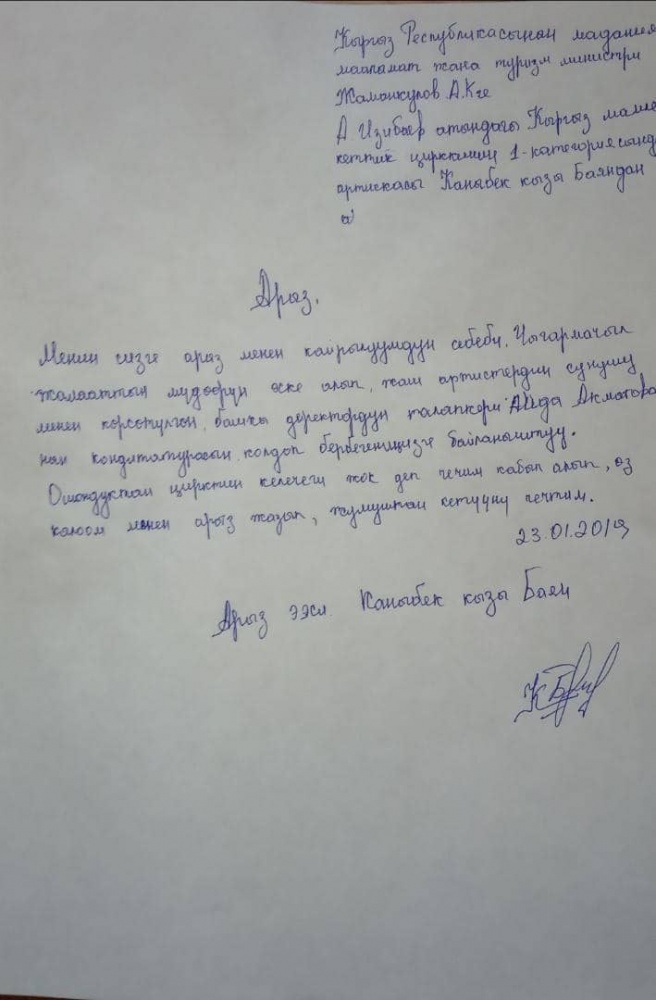 Кыргыз Республикасынын маданият
маалымат жана туризм министри
Жаманкулов А.К ге
А Изибаев атындагы Кыргыз мамле
кеттик циркинин 1-категориясында
артискасы Каныбек кызы Баяндан
Арыз.
Менин сизге арыз менен кайрылуумдун себеби, Чыгармачыл
жамааттын мүдөөрүн эске алып, жаш артистердин сунушу
менен көрсөтүлгөн, башкы деректордун талапкери Аида Акматова
нын кондитатурасын колдоп бербегениңизге байланыштуу.
Ошондуктан цирктин келечеги жок деп чечим кабыл алып, өз
каалоом менен арыз жазып, жумуштан кетүүнү чечтим.
23.01.2019
Арыз ээси. Каныбек кызы Баян